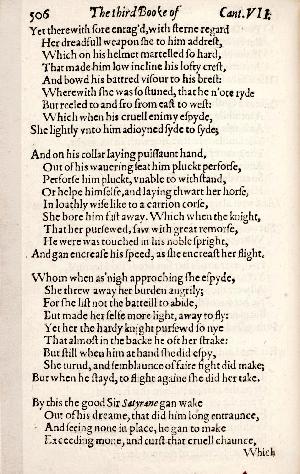 506 The third Booke of Cant. VII.
Yet therewith sore enrag'd, with sterne regard
Her dreadfull weapon she to him addrest,
Which on his helmet martelled so hard,
That made him low incline his lofty crest,
And bowd his battred visour to his brest:
Wherewith she was so stuned, that he n'ote ryde
But reeled to and fro from east to west:
Which when his cruell enimy espyde,
She lightly vnto him adioyned syde to syde;
And on his collar laying puissaunt hand,
Out of his wauering seat him pluckt perforse,
Perforse him pluckt, vnable to withstand,
Or helpe himselfe, and laying thwart her horse,
In loathly wise like to a carrion corse,
She bore him fast away. Which when the knight,
That her pursewed, saw with great remorse,
He were was touched in his noble spright,
And gan encrease his speed, as she encreast her flight.
Whom when as nigh approching she espyde,
She threw away her burden angrily;
For she list not the batteill to abide,
But made her selfe more light, away to fly:
Yet her the hardy knight pursewd so nye
That almost in the backe he oft her strake:
But still when him at hand she did espy,
She turnd, and semblaunce of faire fight did make;
But when he stayd, to flight againe she did her take.
By this the good Sir Satyrane gan wake
Out of his dreame, that did him long entraunce,
And seeing none in place, he gan to make
Exceeding mone, and curst that cruell chaunce,
Which